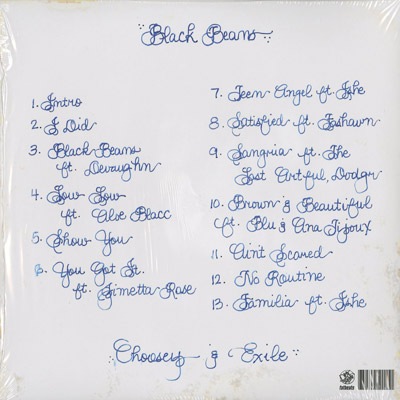 Black Beans
1. Intro
2. I Did
3. Black Beans
ft. Devaughn
4. Low Low
ft. Aloe Blacc
5. Show You
6. You Got It
ft. Jimetta Rose
7. Teen Angel ft. Ishe
8. Satisfied ft. Fashawn
9. Sangria ft. The
Lost Artful Dodgr
10. Brown & Beautiful
ft. Blu & Ana Tijoux
11. Ain't Scared
12. No Routine
13. Familia ft. Ishe
Choosey & Exile
fatbeats